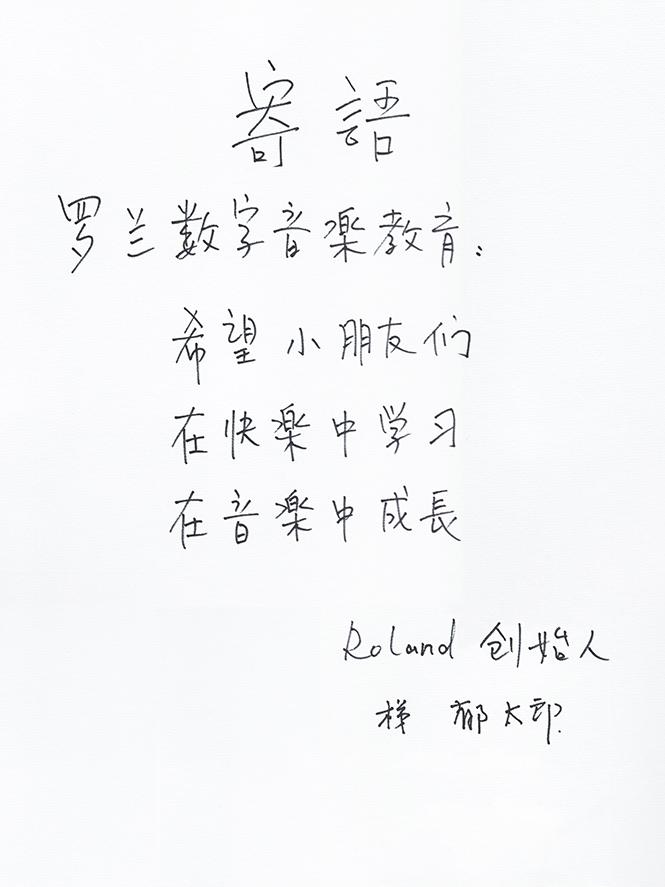 寄語
罗兰数字音楽教育：
希望小朋友们
在快楽中学习
在音楽中成長
Roland 创始人
梯 郁太郎